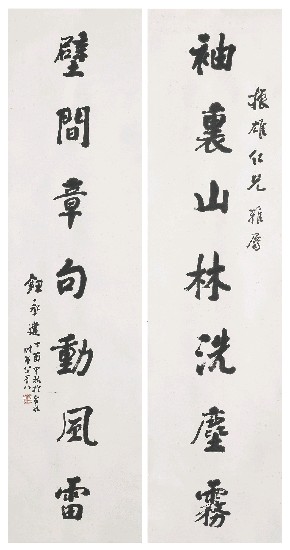 振雄仁兄雅屬
袖裏山林洗塵霧
壁間章句動風雷
鈕永建丁酉